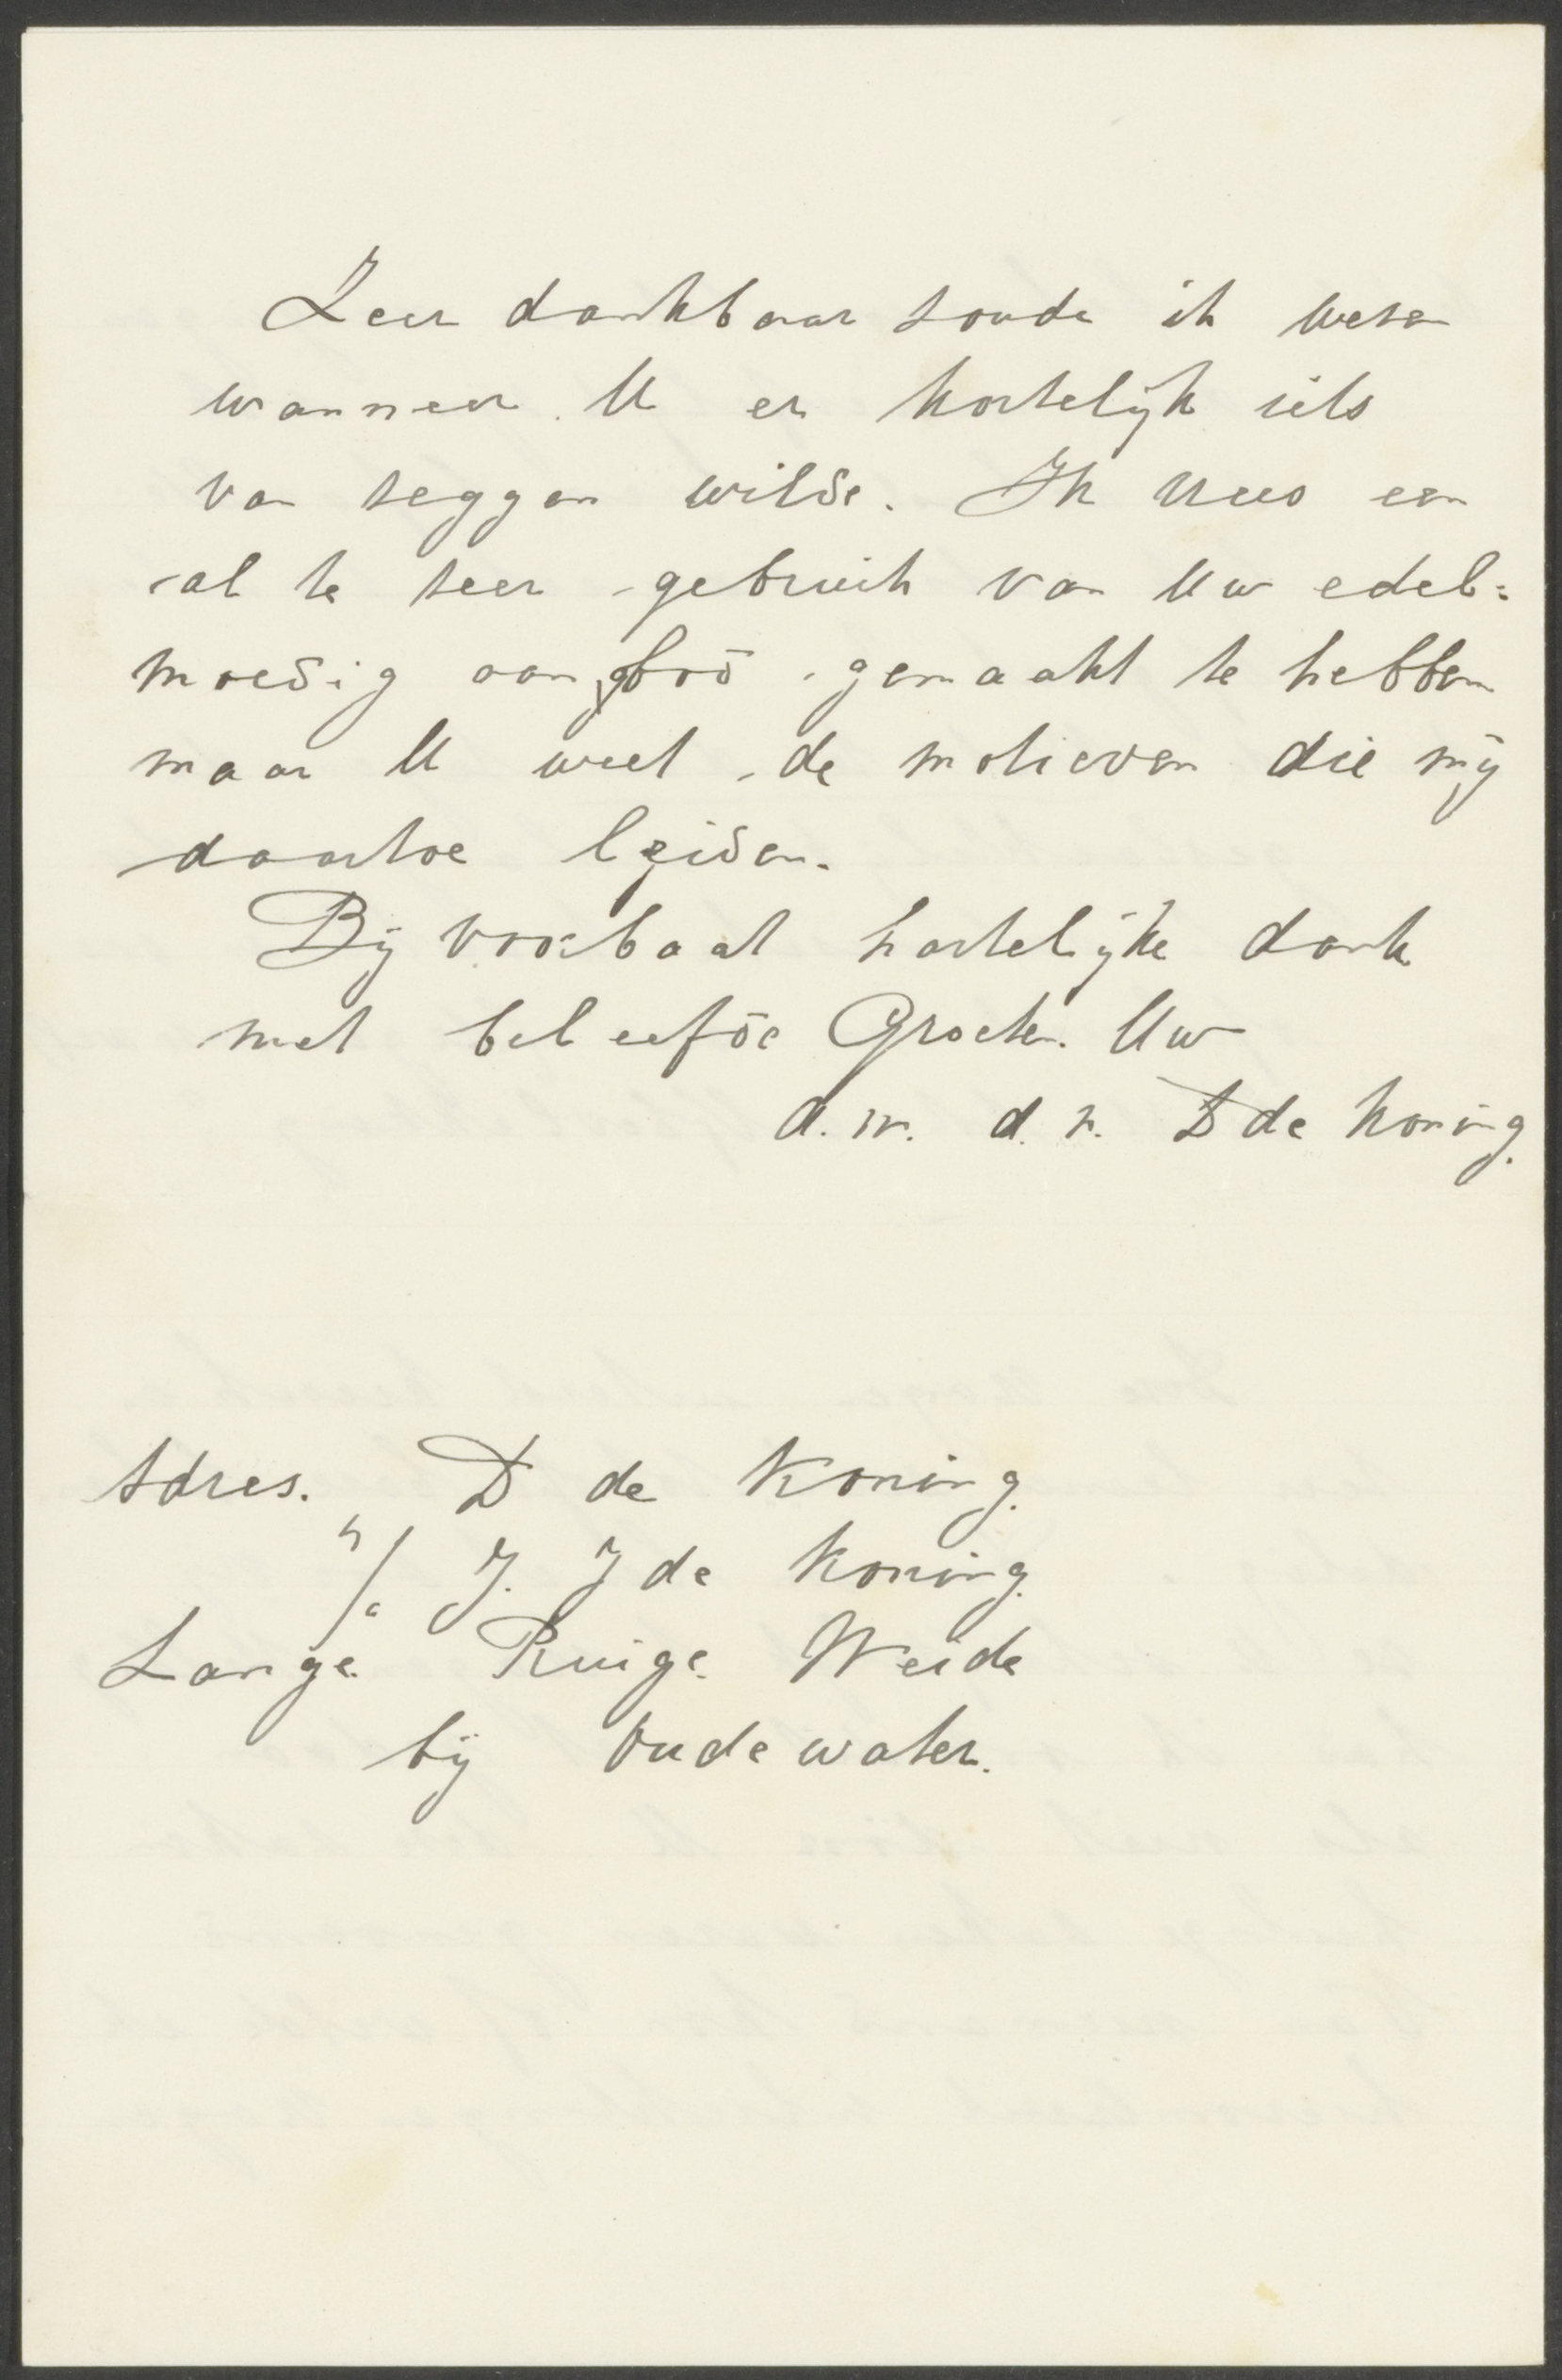 Zeer dankbaar zoude ik wezen
wanneer U er kortelijk iets
van zeggen wilde. Ik vrees een
al te zeer gebruik van Uw edel=
moedig aanbod gemaakt te hebben
maar U weet de motieven die mij
daartoe leiden.
Bij voorbaat hartelijke dank
met beleefde Groeten. Uw
d. w. d. n. D de Koning.
Adres. D de Koning.
p/a J. J de Koning.
Lange Ruige Weide
bij Oudewater.